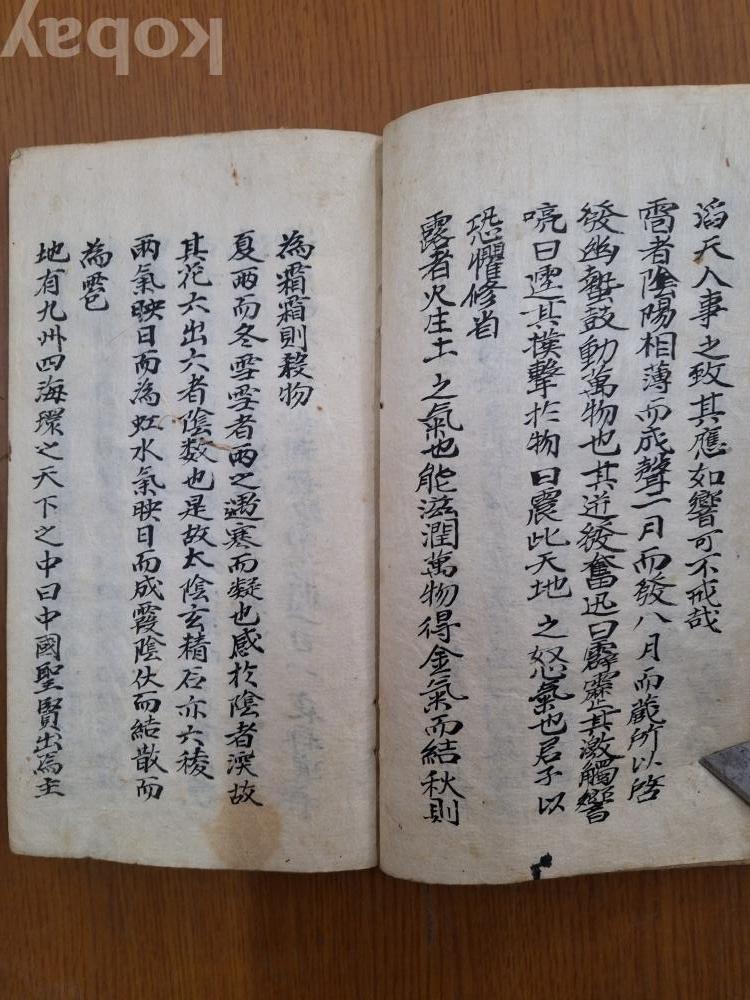 kobay
滔天人事之致其應如響可不戒哉
雹者陰陽相薄而成聲二月而發八月而藏所以啓
發幽蟄鼓動萬物也其迸發奮迅曰霹靂其激觸響
亮曰霆其撲擊扵物曰震此天地之怒氣也君子以
恐懼修省
露者火生土之氣也能滋潤萬物得金氣而結秋則
為霜霜則殺物
夏雨而冬雪雪者雨之遇寒而凝也感扵陰者深故
其花六出六者陰数也是故太陰玄精石亦六稜
雨氣映日而為虹水氣映日而成霞陰伏而結散而
為雹
地有九州四海環之天下之中曰中國聖賢出為主